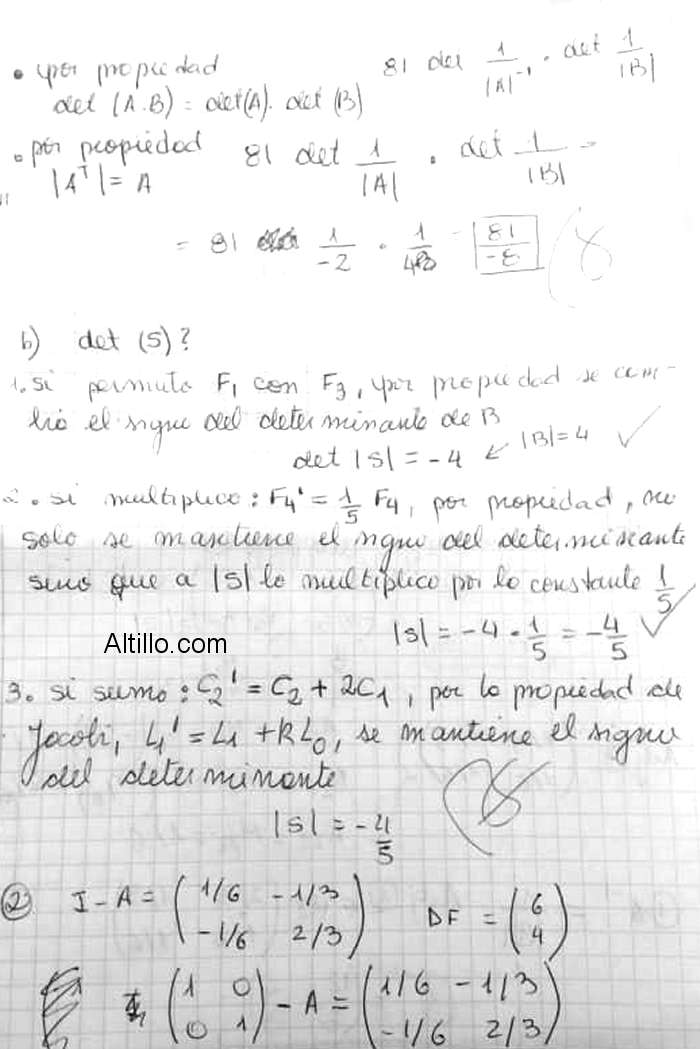 • por propiedad 81 det 1/|A|⁻¹ · det 1/|B|
det (A.B) = det(A). det (B)
• por propiedad 81 det 1/|A| • det 1/|B| =
|Aᵀ| = A
= 81 1/-2 · 1/4 = 81/-8
b) det (S)?
1. si permuto F₁ con F₃, por propiedad se cam-
bia el signo del determinante de B
det |S| = -4 ← |B|=4 ✓
2. si multiplico: F₄' = 1/5 F₄, por propiedad, no
solo se mantiene el signo del determinante
sino que a |S| lo multiplico por la constante 1/5
|S| = -4 · 1/5 = -4/5 ✓
Altillo.com
3. si sumo: C₂' = C₂ + 2C₁, por la propiedad de
Jacobi, L₁' = L₁ + KL₀, se mantiene el signo
del determinante
|S| = -4/5
② I - A = (1/6 -1/3 DF = (6
-1/6 2/3) 4)
(1 0 - A = (1/6 -1/3
0 1) -1/6 2/3)